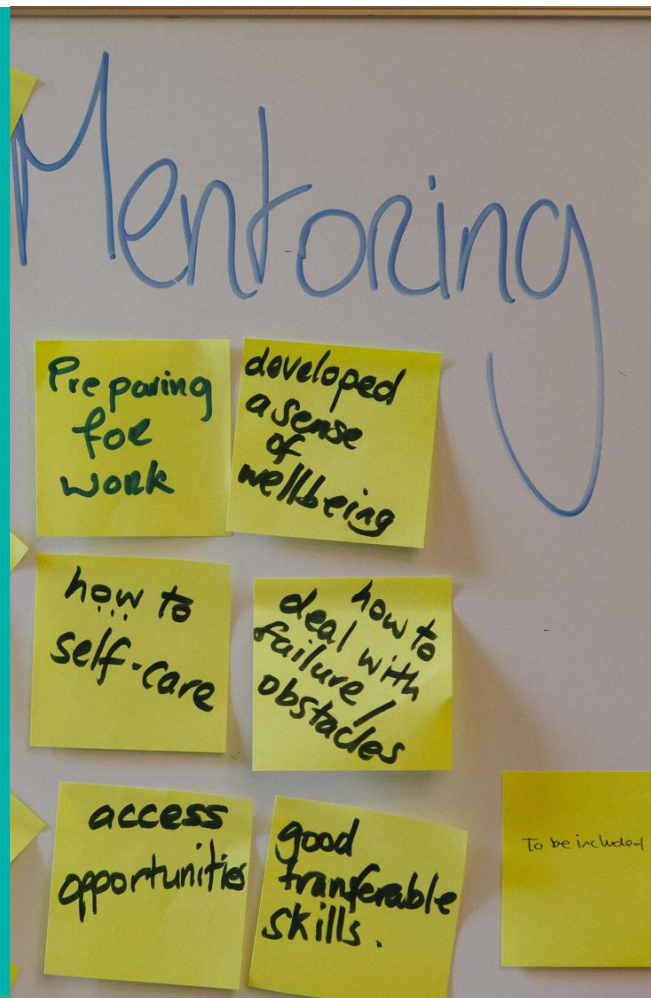 Mentoring
Preparing
for
work
developed
a sense
of
wellbeing
how to
self-care
how to
deal with
failure/
obstacles
access
opportunities
good
tranferable
skills.
To be included